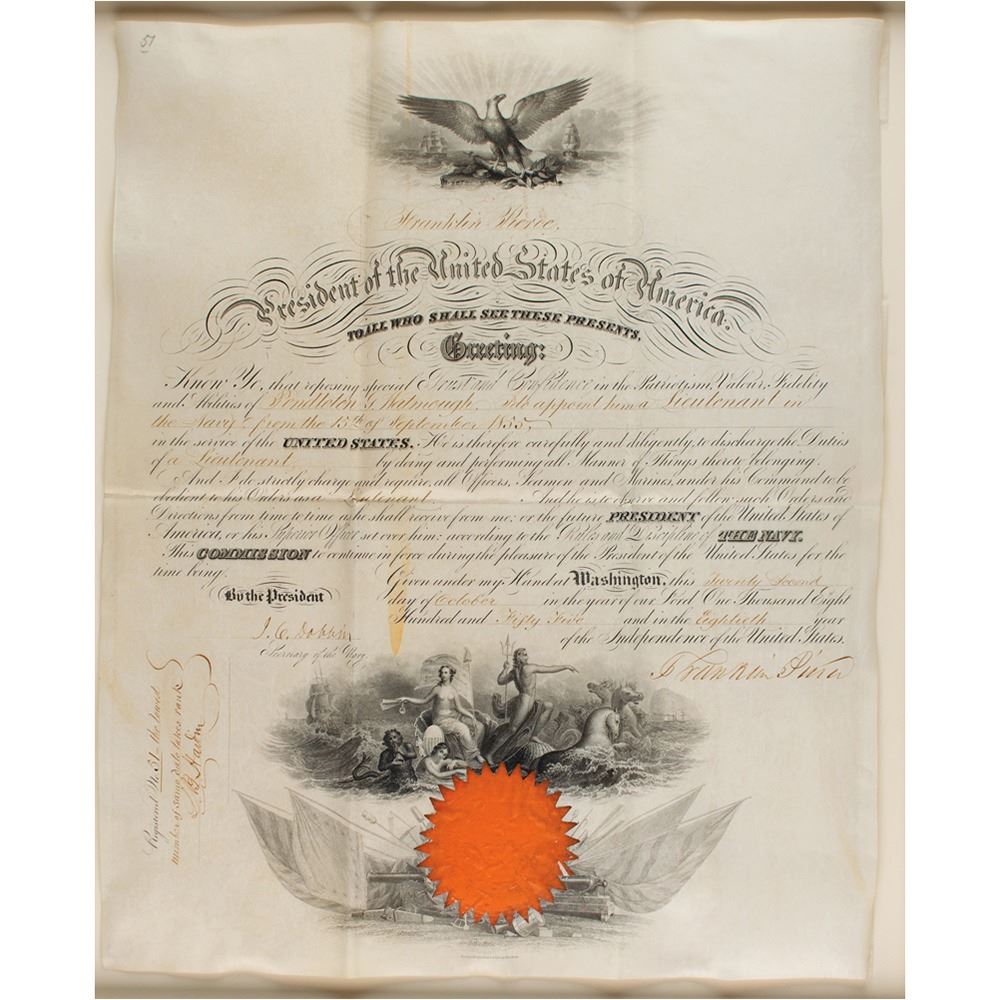 51
Franklin Pierce,
President of the United States of America.
TO ALL WHO SHALL SEE THESE PRESENTS,
Greeting:
Know Ye, that reposing special Trust and Confidence in the Patriotism, Valour, Fidelity
and Abilities of Pendleton G. Watmough, I do appoint him a Lieutenant in
the Navy from the 15th of September 1855,
in the service of the UNITED STATES. He is therefore carefully and diligently, to discharge the Duties
of a Lieutenant by doing and performing all Manner of Things thereto belonging.
And I do strictly charge and require, all Officers, Seamen and Marines, under his Command to be
obedient to his Orders as a Lieutenant. And he is to observe and follow such Orders and
Directions from time to time as he shall receive from me; or the future PRESIDENT of the United States of
America, or his Superior Officer set over him; according to the Rules and Discipline of THE NAVY.
This COMMISSION to continue in force during the pleasure of the President of the United States for the
time being.
Given under my Hand at Washington, this Twenty Second
By the President
day of October in the year of our Lord One Thousand Eight
Hundred and Fifty Five and in the Eightieth year
of the Independence of the United States.
J. C. Dobbin
Secretary of the Navy.
Franklin Pierce
Registered No. 31 - the lowest
number of same date takes rank